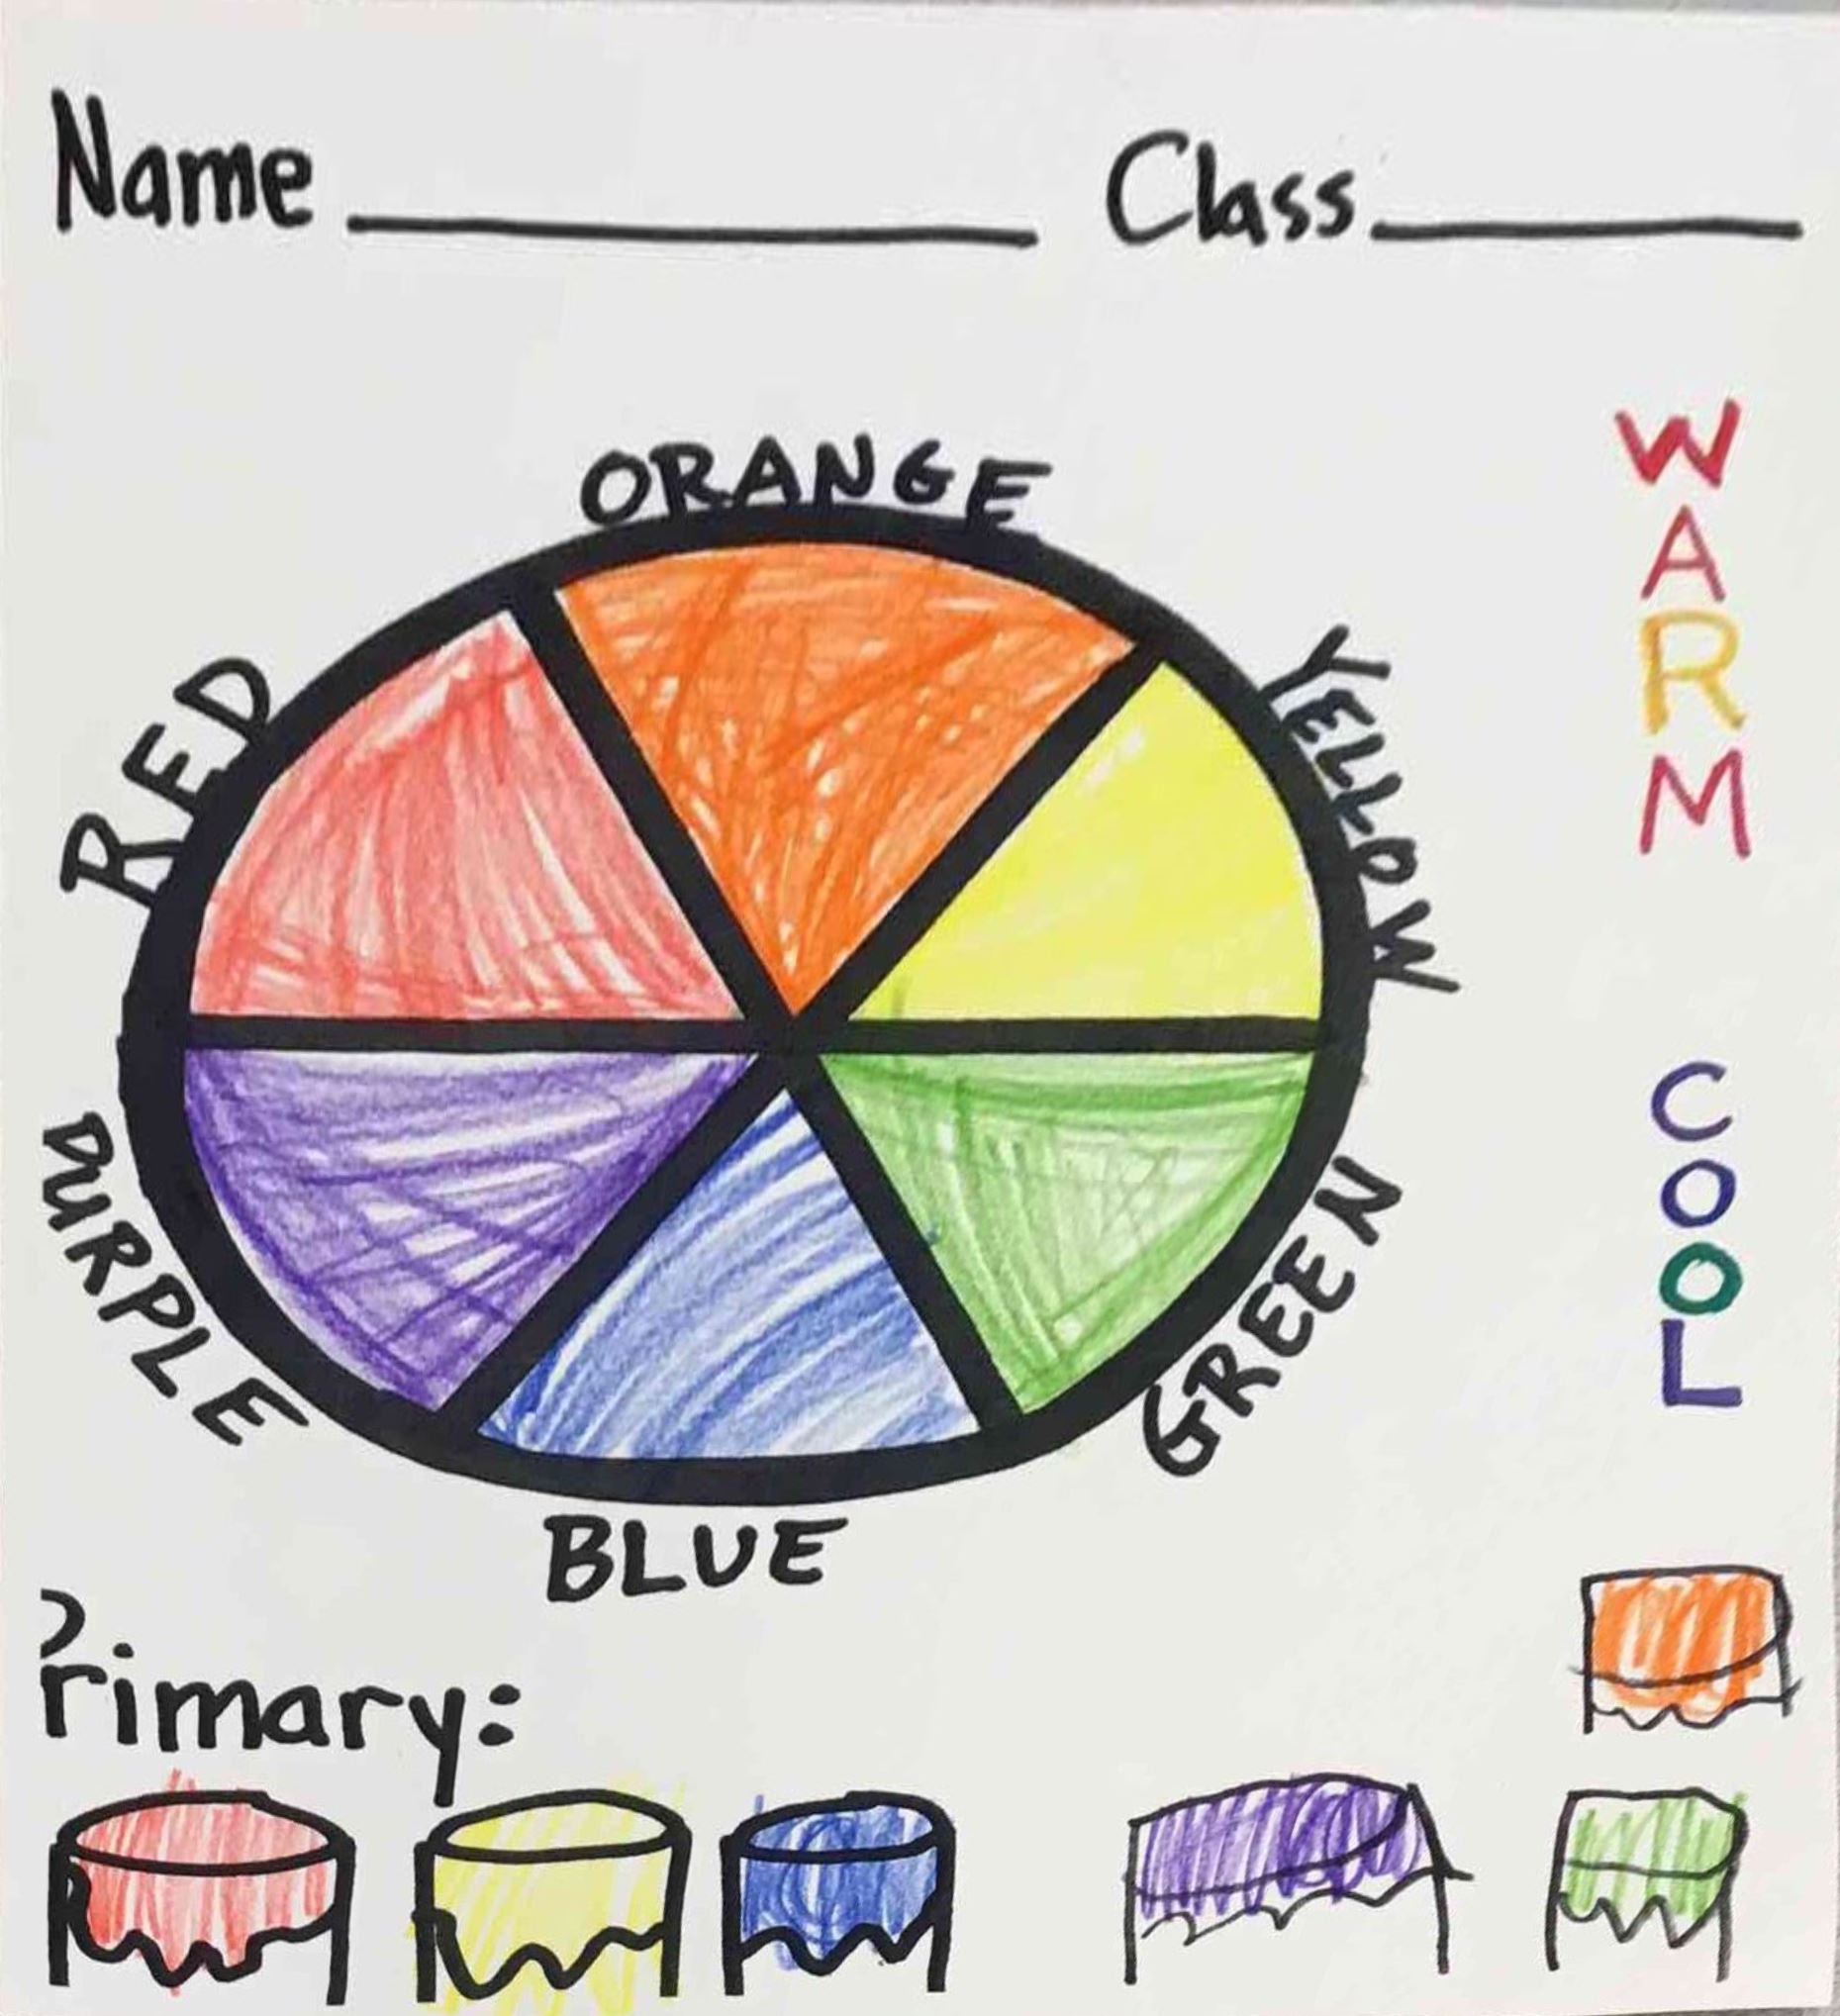 Name Class
ORANGE
RED
YELLOW
PURPLE
GREEN
BLUE
WARM
COOL
Primary: